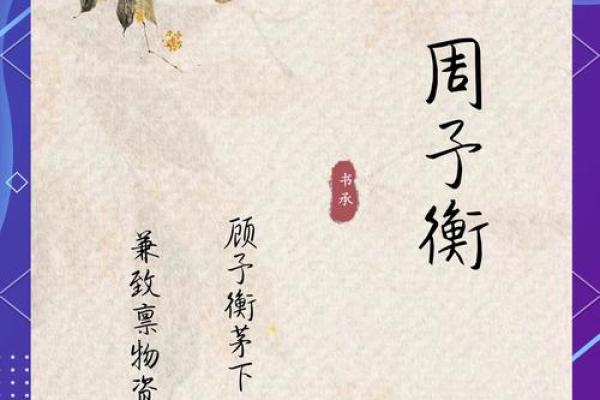 周予衡
书承
顾予衡茅下
兼致禀物资